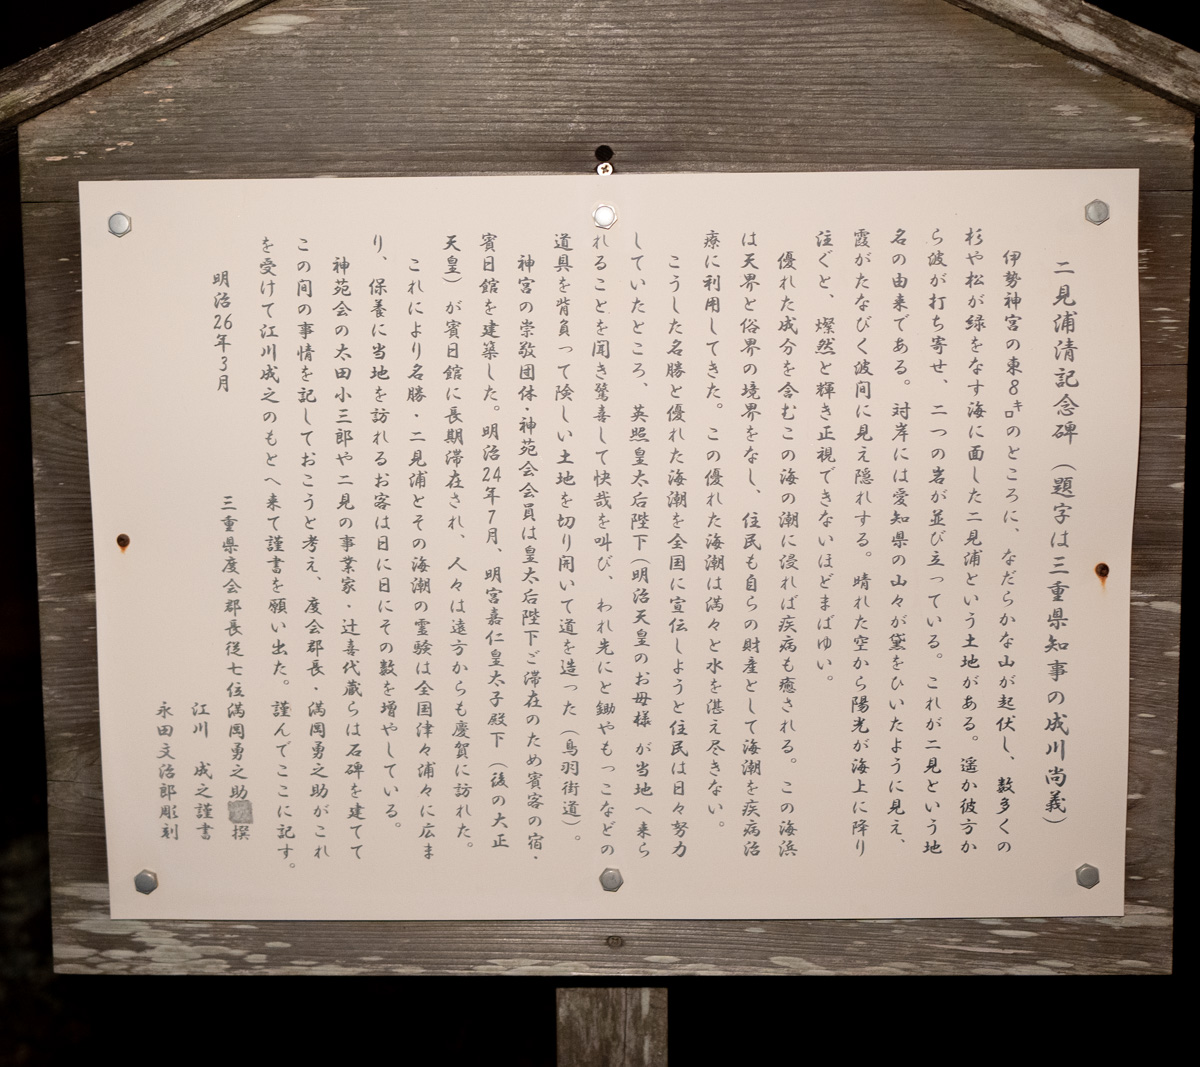 二見浦清記念碑 (題字は三重県知事の成川尚義)
伊勢神宮の東8キロのところに、なだらかな山が起伏し、数多くの
杉や松が緑をなす海に面した二見浦という土地がある。遥か彼方か
ら波が打ち寄せ、二つの岩が並び立っている。これが二見という地
名の由来である。対岸には愛知県の山々が黛をひいたように見え、
霞がたなびく波間に見え隠れする。晴れた空から陽光が海上に降り
注ぐと、燦然と輝き正視できないほどまばゆい。
優れた成分を含むこの海の潮に浸れば疾病も癒される。この海浜
は天界と俗界の境界をなし、住民も自らの財産として海潮を疾病治
療に利用してきた。この優れた海潮は満々と水を湛え尽きない。
こうした名勝と優れた海潮を全国に宣伝しようと住民は日々努力
していたところ、英照皇太后陛下(明治天皇のお母様 が当地へ来ら
れることを聞き驚喜して快哉を叫び、われ先にと鋤やもっこなどの
道具を背負って険しい土地を切り開いて道を造った(鳥羽街道)。
神宮の崇敬団体・神苑会会員は皇太后陛下ご滞在のため賓客の宿・
賓日館を建築した。明治24年7月、明宮嘉仁皇太子殿下(後の大正
天皇)が賓日館に長期滞在され、人々は遠方からも慶賀に訪れた。
これにより名勝・二見浦とその海潮の霊験は全国津々浦々に広ま
り、保養に当地を訪れるお客は日に日にその数を増やしている。
神苑会の太田小三郎や二見の事業家・辻喜代蔵らは石碑を建てて
この間の事情を記しておこうと考え、度会郡長・満岡勇之助がこれ
を受けて江川成之のもとへ来て謹書を願い出た。謹んでここに記す。
明治26年3月
三重県度会郡長従七位満岡勇之助 撰
江川 成之謹書
永田文治郎彫刻